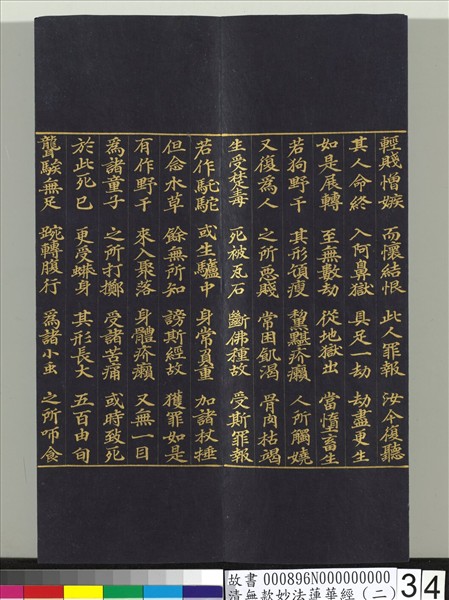 輕賤憎嫉　而懷結恨　此人罪報　汝今復聽
其人命終　入阿鼻獄　具足一劫　劫盡更生
如是展轉　至無數劫　從地獄出　當墮畜生
若狗野干　其形頷瘦　黧黮疥癩　人所觸嬈
又復為人　之所惡賤　常困飢渴　骨肉枯竭
生受楚毒　死被瓦石　斷佛種故　受斯罪報
若作馲駝　或生驢中　身常負重　加諸杖捶
但念水草　餘無所知　謗斯經故　獲罪如是
有作野干　來入聚落　身體疥癩　又無一目
為諸童子　之所打擲　受諸苦痛　或時致死
於此死已　更受蟒身　其形長大　五百由旬
聾騃無足　踠轉腹行　為諸小虫　之所咂食
故書 000896N000000000
清無款妙法蓮華經(二)
34